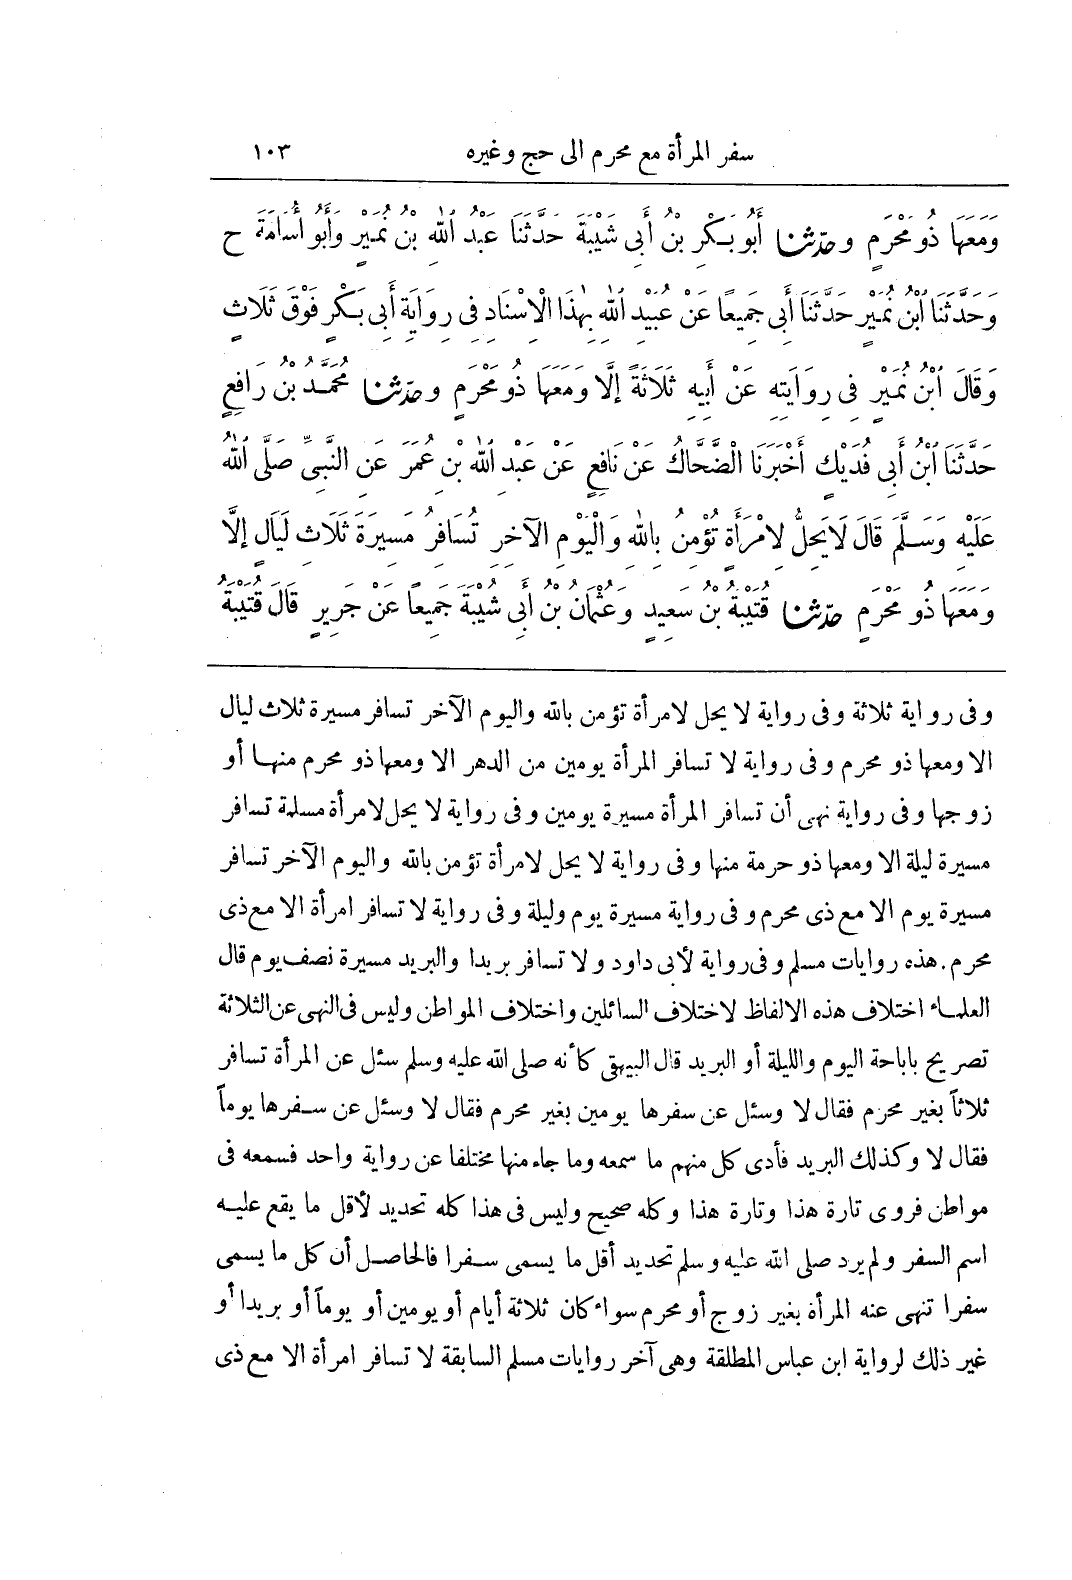 سفر المرأة مع محرم الى حج وغيره ١٠٣
وَمَعَهَا ذُو مَحْرَمٍ وحدّثنا أَبُو بَكْرِ بْنُ أَبِى شَيْبَةَ حَدَّثَنَا عَبْدُ اللّٰهِ بْنُ نُمَيْرٍ وَأَبُو أُسَامَةَ ح
وَحَدَّثَنَا ابْنُ نُمَيْرٍ حَدَّثَنَا أَبِى جَمِيعًا عَنْ عُبَيْدِ اللّٰهِ بِهٰذَا الْإِسْنَادِ فِى رِوَايَةِ أَبِى بَكْرٍ فَوْقَ ثَلَاثٍ
وَقَالَ ابْنُ نُمَيْرٍ فِى رِوَايَتِهِ عَنْ أَبِيهِ ثَلَاثَةً إِلَّا وَمَعَهَا ذُو مَحْرَمٍ وحدّثنا مُحَمَّدُ بْنُ رَافِعٍ
حَدَّثَنَا ابْنُ أَبِى فُدَيْكٍ أَخْبَرَنَا الضَّحَّاكُ عَنْ نَافِعٍ عَنْ عَبْدِ اللّٰهِ بْنِ عُمَرَ عَنِ النَّبِىِّ صَلَّى اللّٰهُ
عَلَيْهِ وَسَلَّمَ قَالَ لَا يَحِلُّ لِامْرَأَةٍ تُؤْمِنُ بِاللّٰهِ وَالْيَوْمِ الْآخِرِ تُسَافِرُ مَسِيرَةَ ثَلَاثِ لَيَالٍ إِلَّا
وَمَعَهَا ذُو مَحْرَمٍ حدّثنا قُتَيْبَةُ بْنُ سَعِيدٍ وَعُثْمَانُ بْنُ أَبِى شَيْبَةَ جَمِيعًا عَنْ جَرِيرٍ قَالَ قُتَيْبَةُ
وفى رواية ثلاثة وفى رواية لا يحل لامرأة تؤمن بالله واليوم الآخر تسافر مسيرة ثلاث ليال
الا ومعها ذو محرم وفى رواية لا تسافر المرأة يومين من الدهر الا ومعها ذو محرم منها أو
زوجها وفى رواية نهى أن تسافر المرأة مسيرة يومين وفى رواية لا يحل لامرأة مسلمة تسافر
مسيرة ليلة الا ومعها ذو حرمة منها وفى رواية لا يحل لامرأة تؤمن بالله واليوم الآخر تسافر
مسيرة يوم الا مع ذى محرم وفى رواية مسيرة يوم وليلة وفى رواية لا تسافر امرأة الا مع ذى
محرم. هذه روايات مسلم وفى رواية لأبى داود ولا تسافر بريدا والبريد مسيرة نصف يوم قال
العلماء اختلاف هذه الالفاظ لاختلاف السائلين واختلاف المواطن وليس فى النهى عن الثلاثة
تصريح باباحة اليوم والليلة أو البريد قال البيهقى كأنه صلى الله عليه وسلم سئل عن المرأة تسافر
ثلاثاً بغير محرم فقال لا وسئل عن سفرها يومين بغير محرم فقال لا وسئل عن سفرها يوماً
فقال لا وكذلك البريد فأدى كل منهم ما سمعه وما جاء منها مختلفا عن رواية واحد فسمعه فى
مواطن فروى تارة هذا وتارة هذا وكله صحيح وليس فى هذا كله تحديد لأقل ما يقع عليه
اسم السفر ولم يرد صلى الله عليه وسلم تحديد أقل ما يسمى سفرا فالحاصل أن كل ما يسمى
سفرا تنهى عنه المرأة بغير زوج أو محرم سواء كان ثلاثة أيام أو يومين أو يوماً أو بريدا أو
غير ذلك لرواية ابن عباس المطلقة وهى آخر روايات مسلم السابقة لا تسافر امرأة الا مع ذى